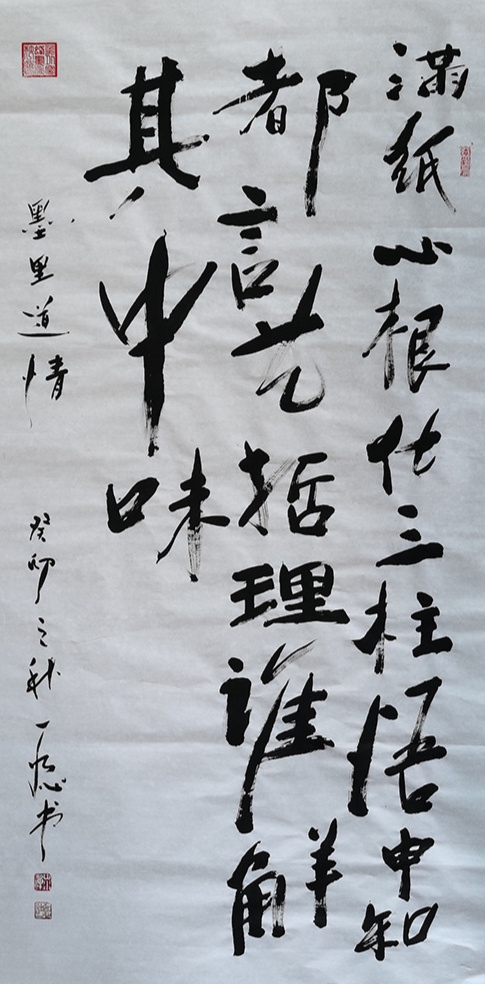 满紙心根化三柱悟申知
都言艺括理谁解
其中味
墨里道情 癸卯之秋 一书